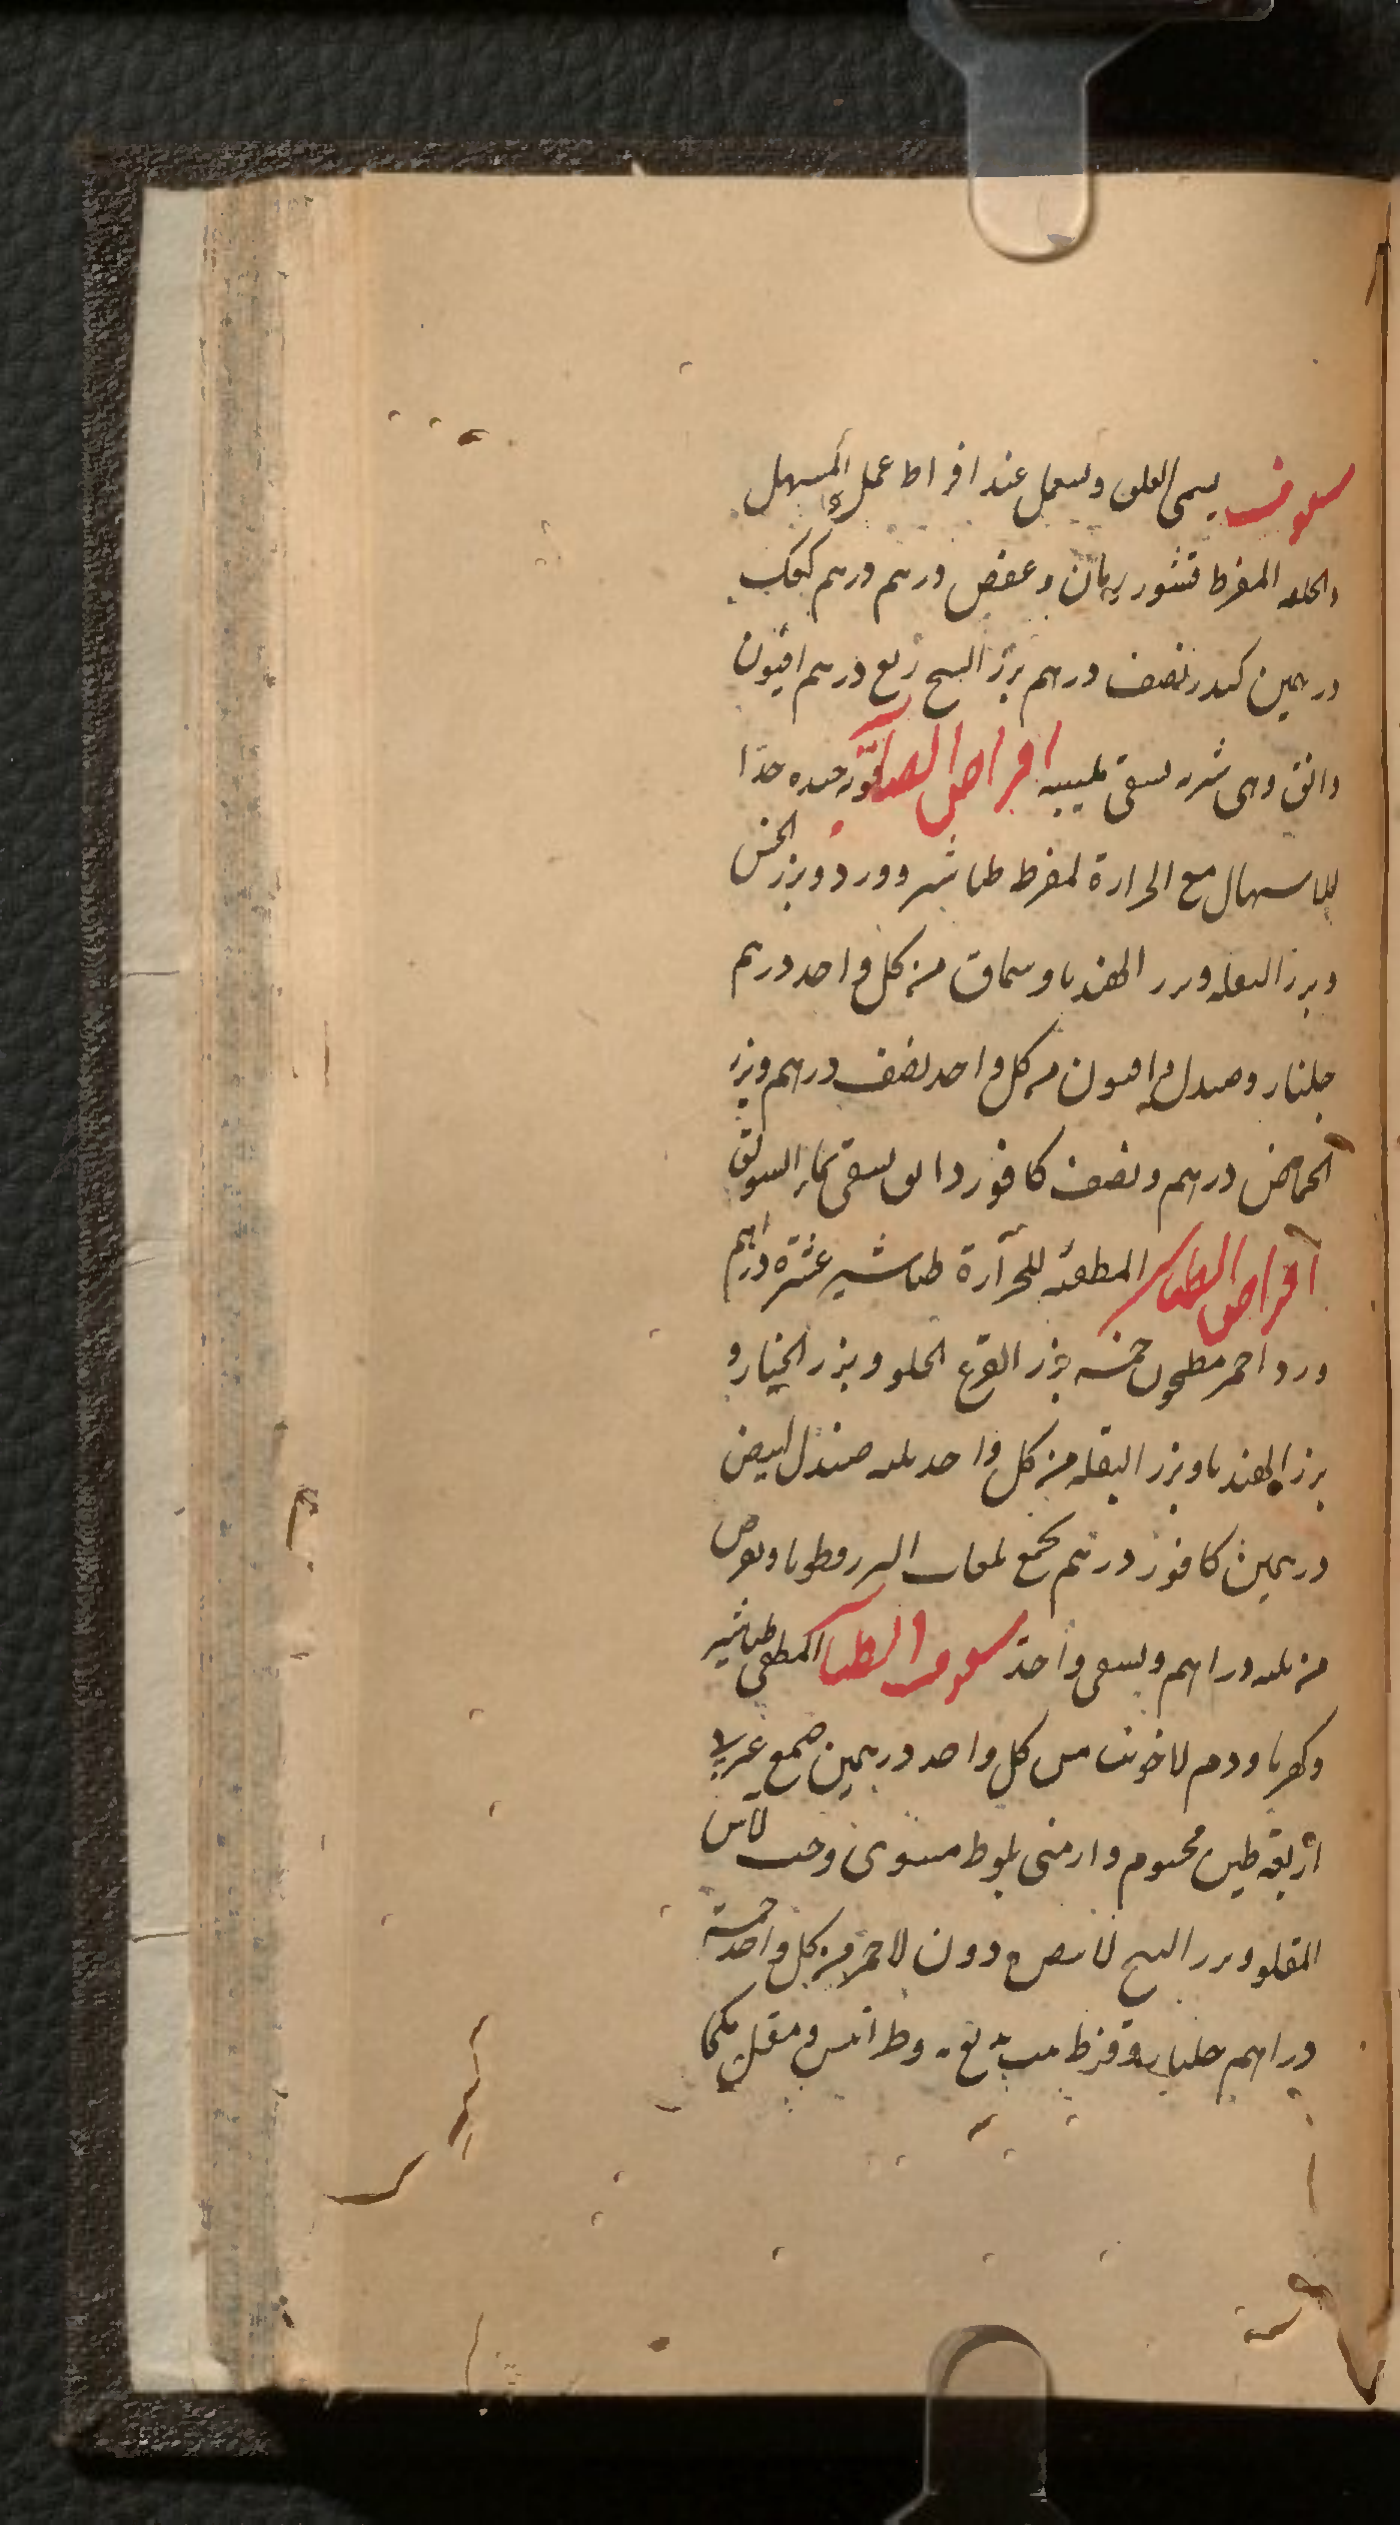 سفوف يسمى ويستعمل عند افراط عمل المسهل
المفرط قشور رمان وعفص درهم درهم كعك
درهمين كندر نصف درهم بزر البنج ربع درهم افيون
دانق وهى شربه يسقى بميبه اقراص قويه جيده جدا
للاسهال مع الحرارة لمفرط طباشير وورد وبزر الخس
وبزر البقله وبزر الهندبا وسماق من كل واحد درهم
جلنار وصندل وافيون من كل واحد نصف درهم وبزر
الحماض درهم ونصف كافور دانق يسقى بماء السويق
اقراص الطباشير المطفئه للحرارة طباشير عشرة دراهم
ورد احمر مطحون خمسه بزر القرع الحلو وبزر الخيار و
بزر الهندبا وبزر البقله من كل واحد ثلثه صندل ابيض
درهمين كافور درهم يجمع بلعاب البزرقطونا ويقرص
من ثلثه دراهم ويسقى واحد سفوف الطباشير المطفى طباشير
وكهربا ودم لاخوين من كل واحد درهمين صمغ عربى
اربعة طين مختوم وارمنى بلوط مشوى وحب لاس
المقلو وبزر البنج لابيض دون لاحمر من كل واحد خمسة
دراهم جلنار وقرظ وطراثيث ومقل مكى